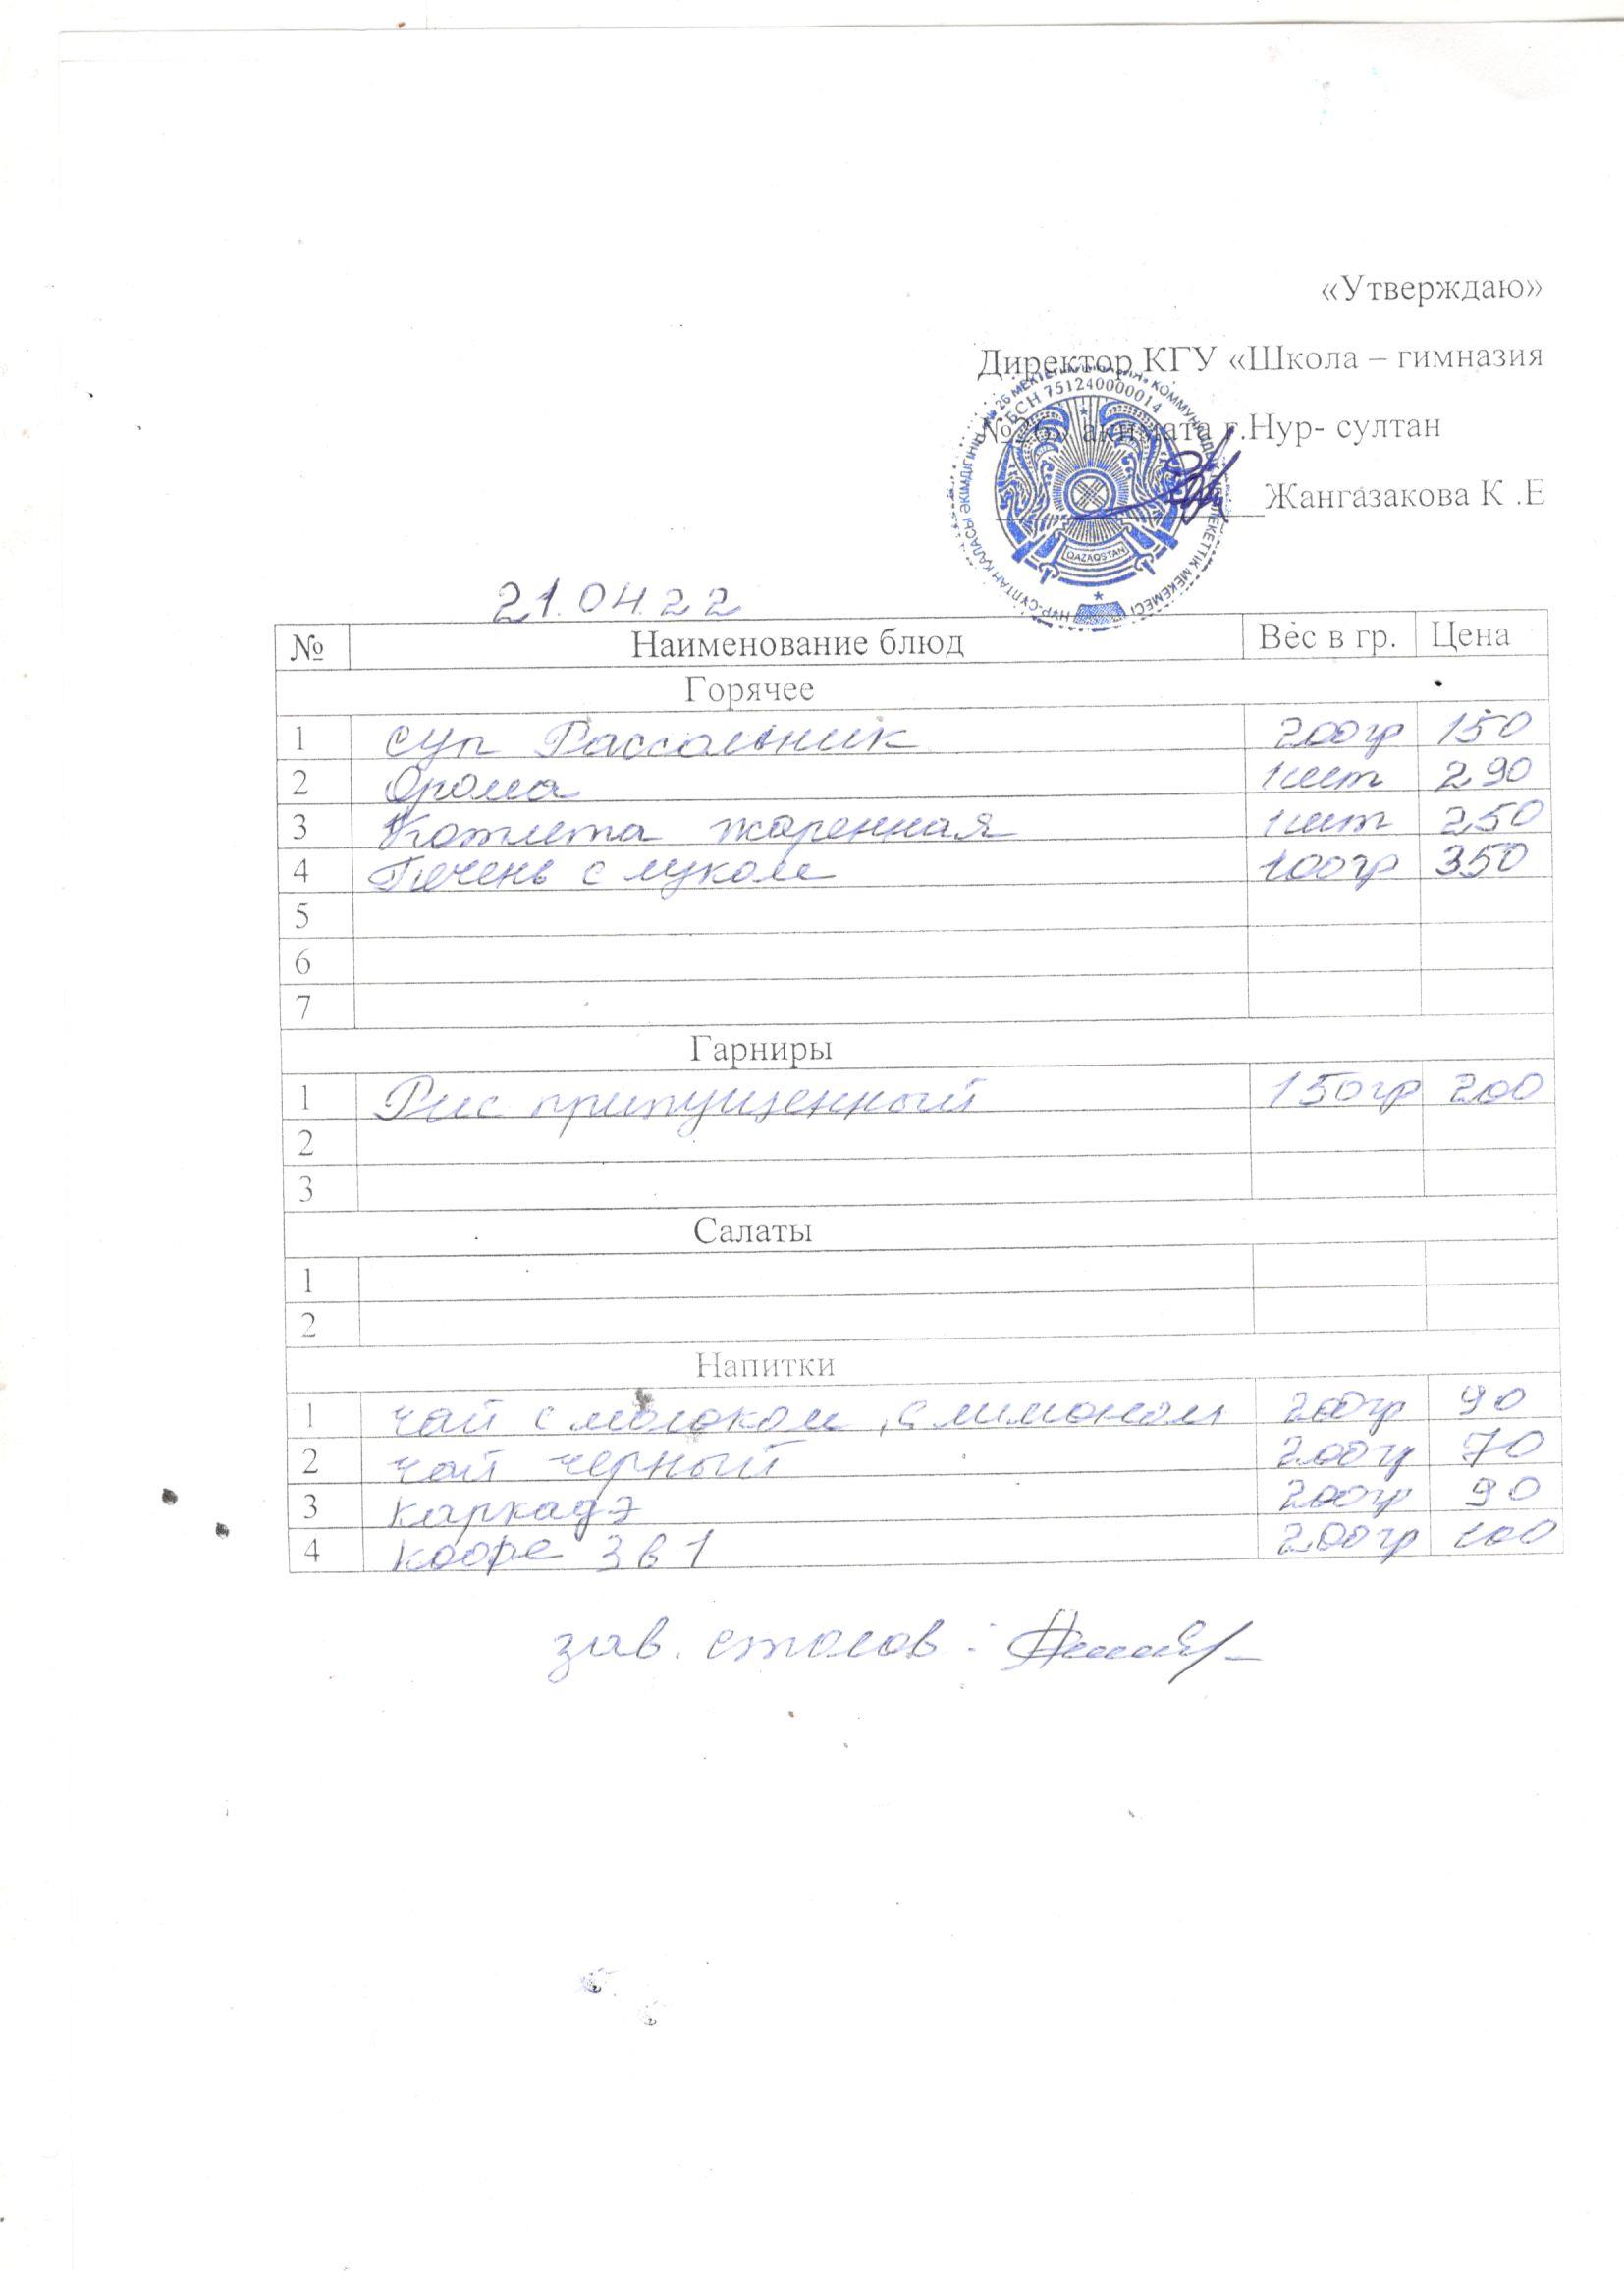 «Утверждаю»
Директор КГУ «Школа – гимназия
№26» акимата г.Нур- султан
Жангазакова К .Е
БСН 751240000014
QAZAQSTAN
21.04.22
№ Наименование блюд Вес в гр. Цена
Горячее
1 суп Рассольник 200гр 150
2 Орома 1шт 290
3 Котлета жаренная 1шт 250
4 Печень с луком 100гр 350
5
6
7
Гарниры
1 Рис припущенный 150гр 200
2
3
Салаты
1
2
Напитки
1 чай с молоком, с лимоном 200гр 90
2 чай черный 200гр 70
3 каркадэ 200гр 90
4 кофе 3в1 200гр 100
зав. столов: